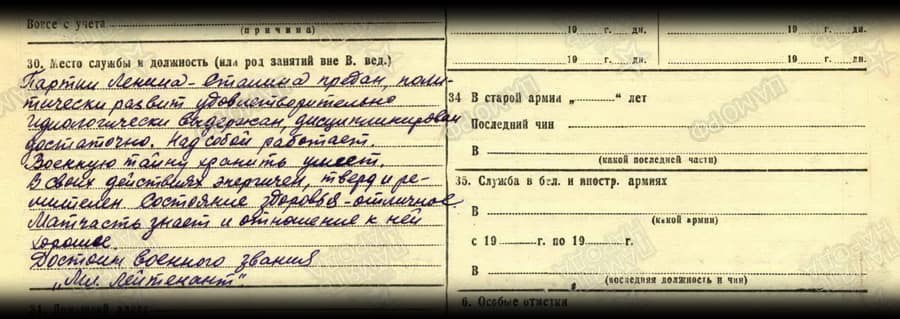 Вовсе с учета
(причина)
30. Место службы и должность (или род занятий вне В. вед.)
Партии Ленина-Сталина предан, поли-
тически развит удовлетворительно
Идиологически выдержан, дисциплинирован
достаточно. Над собой работает.
Военную тайну хранить умеет.
В своих действиях энергичен, тверд и ре-
шителен. Состояние здоровья - отличное.
Матчасть знает и отношение к ней
хорошее.
Достоин военного звания
"Мл. лейтенант".
19 г. дн. 19 г. дн.
19 г. дн. 19 г. дн.
34 В старой армии „ " лет
Последний чин
В
(какой последней части)
35. Служба в бел. и иностр. армиях
В
(какой армии)
с 19 г. по 19 г.
В
(последняя должность и чин)
6. Особые отметки
ПАМОРФ